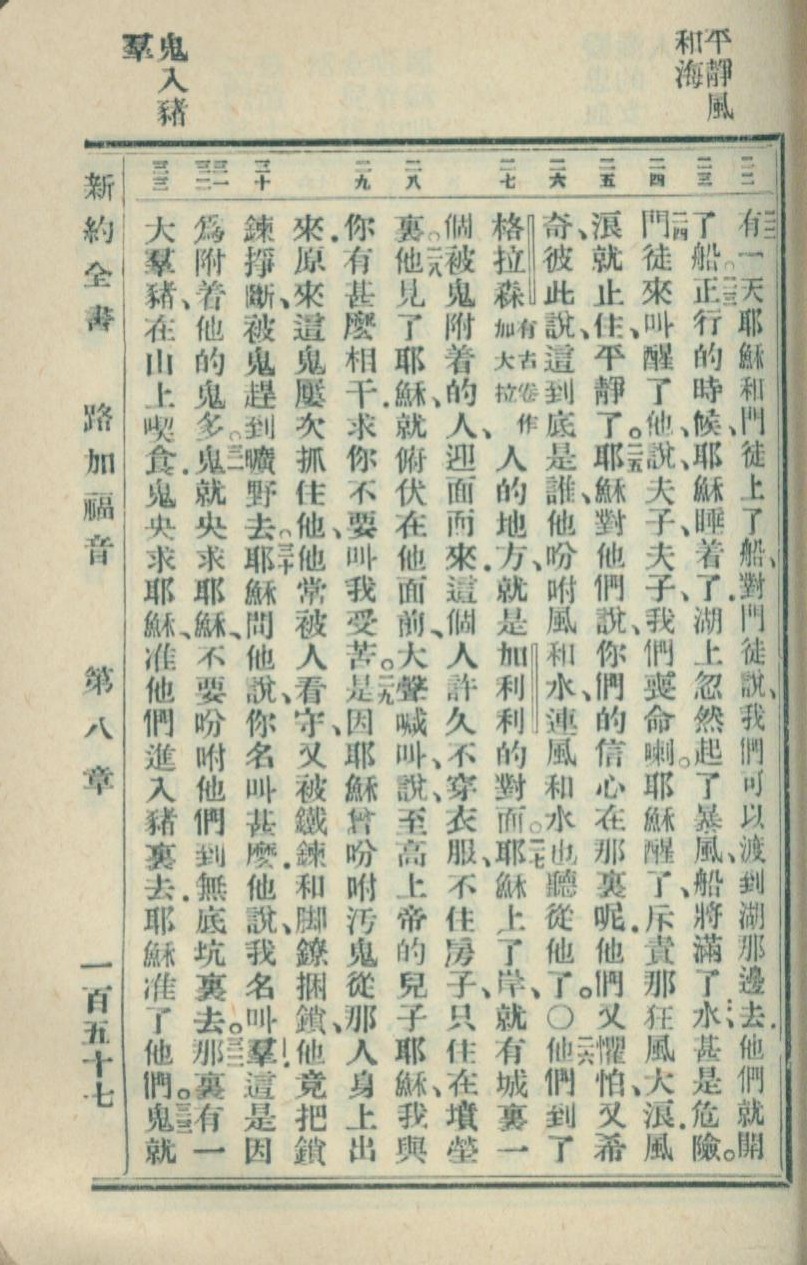 平靜風
和海
鬼入豬
羣
二二
二三
二四
二五
二六
二七
二八
二九
三十
三一
三二
三三
二二有一天耶穌和門徒上了船、對門徒說、我們可以渡到湖那邊去.他們就開
了船。二三正行的時候、耶穌睡着了.湖上忽然起了暴風、船將滿了水、甚是危險。
二四門徒來叫醒了他、說、夫子、夫子、我們喪命喇。耶穌醒了、斥責那狂風大浪.風
浪就止住、平靜了。二五耶穌對他們說、你們的信心在那裏呢.他們又懼怕、又希
奇、彼此說、這到底是誰、他吩咐風和水、連風和水也聽從他了。〇二六他們到了
格拉森有古卷作加大拉人的地方、就是加利利的對面。二七耶穌上了岸、就有城裏一
個被鬼附着的人、迎面而來.這個人許久不穿衣服、不住房子、只住在墳塋
裏。二八他見了耶穌、就俯伏在他面前、大聲喊叫、說、至高上帝的兒子耶穌、我與
你有甚麼相干.求你不要叫我受苦。二九是因耶穌曾吩咐汚鬼從那人身上出
來.原來這鬼屢次抓住他、他常被人看守、又被鐵鍊和脚鐐捆鎖、他竟把鎖
鍊掙斷、被鬼趕到曠野去。三十耶穌問他說、你名叫甚麼.他說、我名叫羣這是因
爲附着他的鬼多。三一鬼就央求耶穌、不要吩咐他們到無底坑裏去。三二那裏有一
大羣豬、在山上喫食.鬼央求耶穌、准他們進入豬裏去.耶穌准了他們。三三鬼就
新約全書　路加福音　第八章　一百五十七